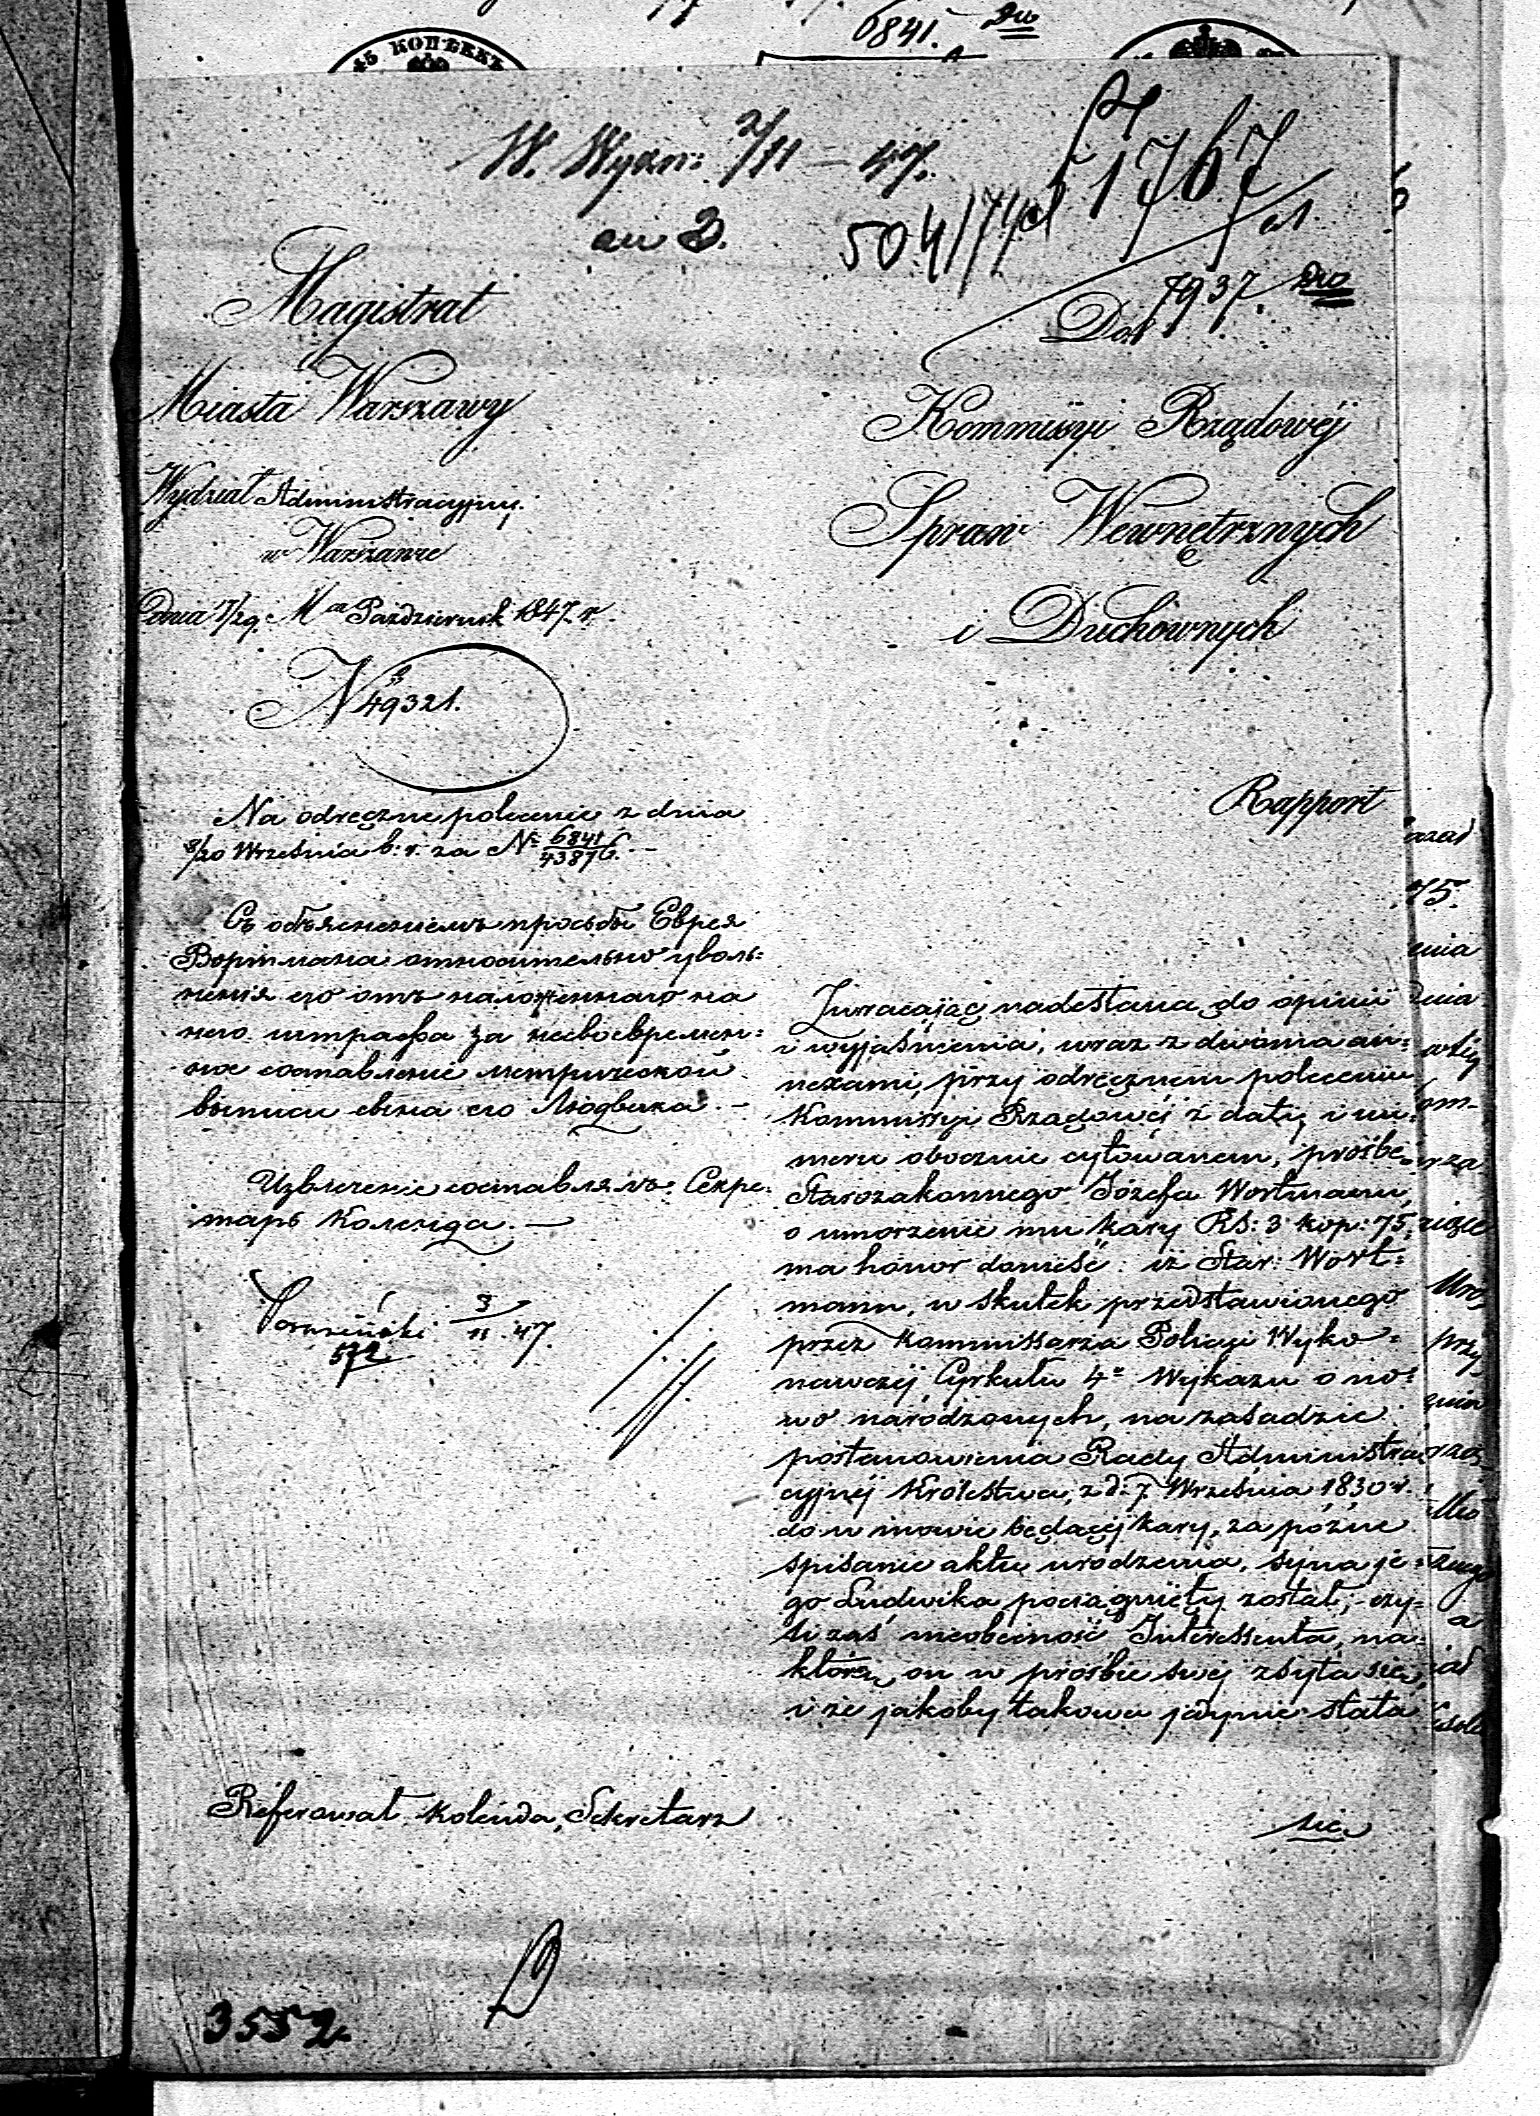 6841.
45 КОПѢЕКЪ
W. Wydz: 2/11 – 47.
an 2.
1767
7937.
Magistrat
Miasta Warszawy
Wydział Administracyjny.
w Warszawie
Dnia 17/29. Mca Październik 1847. r.
N 49321.
Na odręczne polecenie z dnia
8/20 Września b: r: za No 6841/43876. –
Съ объясненіемъ просьбы Еврея
Вортмана относительно уволь=
ненія его отъ наложеннаго на
него штрафа за несвоевремен=
ное составленіе метрической
выписи сына его Людвика. –
Извлеченіе составлялъ: Секре=
тарь Коленда. –
3/11. 47.
572
Do
Kommissyi Rządowéj
Spraw Wewnętrznych
i Duchownych
Rapport
Zwracając nadesłaną do opinii
i wyjaśnienia, wraz z dwoma an=
nexami, przy odręcznem poleceniu
Kommissyi Rządowéj z datą i nu=
meru obocznie cytowanem, prośbę
Starozakonnego Józefa Wortmann,
o umorzenie mu kary RS: 3 kop: 75,
ma honor donieść: iż Star: Wort=
mann, w skutek przedstawionego
przez Kommissarza Policyi Wyko=
nawczéj Cyrkułu 4o Wykazu o no=
wo narodzonych, na zasadzie
postanowienia Rady Administra=
cyjnéj Królestwa, z d: 7 Września 1830 r.
do w mowie będącéj kary, za późne
spisanie aktu urodzenia, syna je=
go Ludwika pociągnięty został; czy=
li zaś nieobecność Interessenta, na
którą on w prośbie swéj zsyła się,
i że jakoby takowa jedynie stała
się
Referował Kolenda, Sekretarz
3552